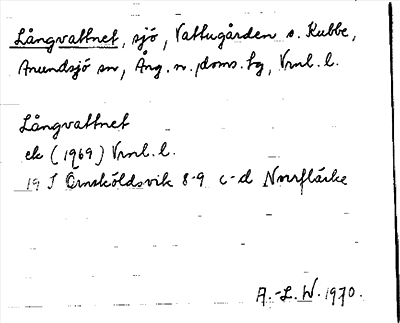 Långvattnet, sjö, Vattugården s. Kubbe,
Anundsjö sn, Ång. n. doms. tg, Vrnl. l.
Långvattnet
ek (1969) Vrnl. l.
19 J Örnsköldsvik 8-9 c-d Norrfläske
A.-L. W. 1970.